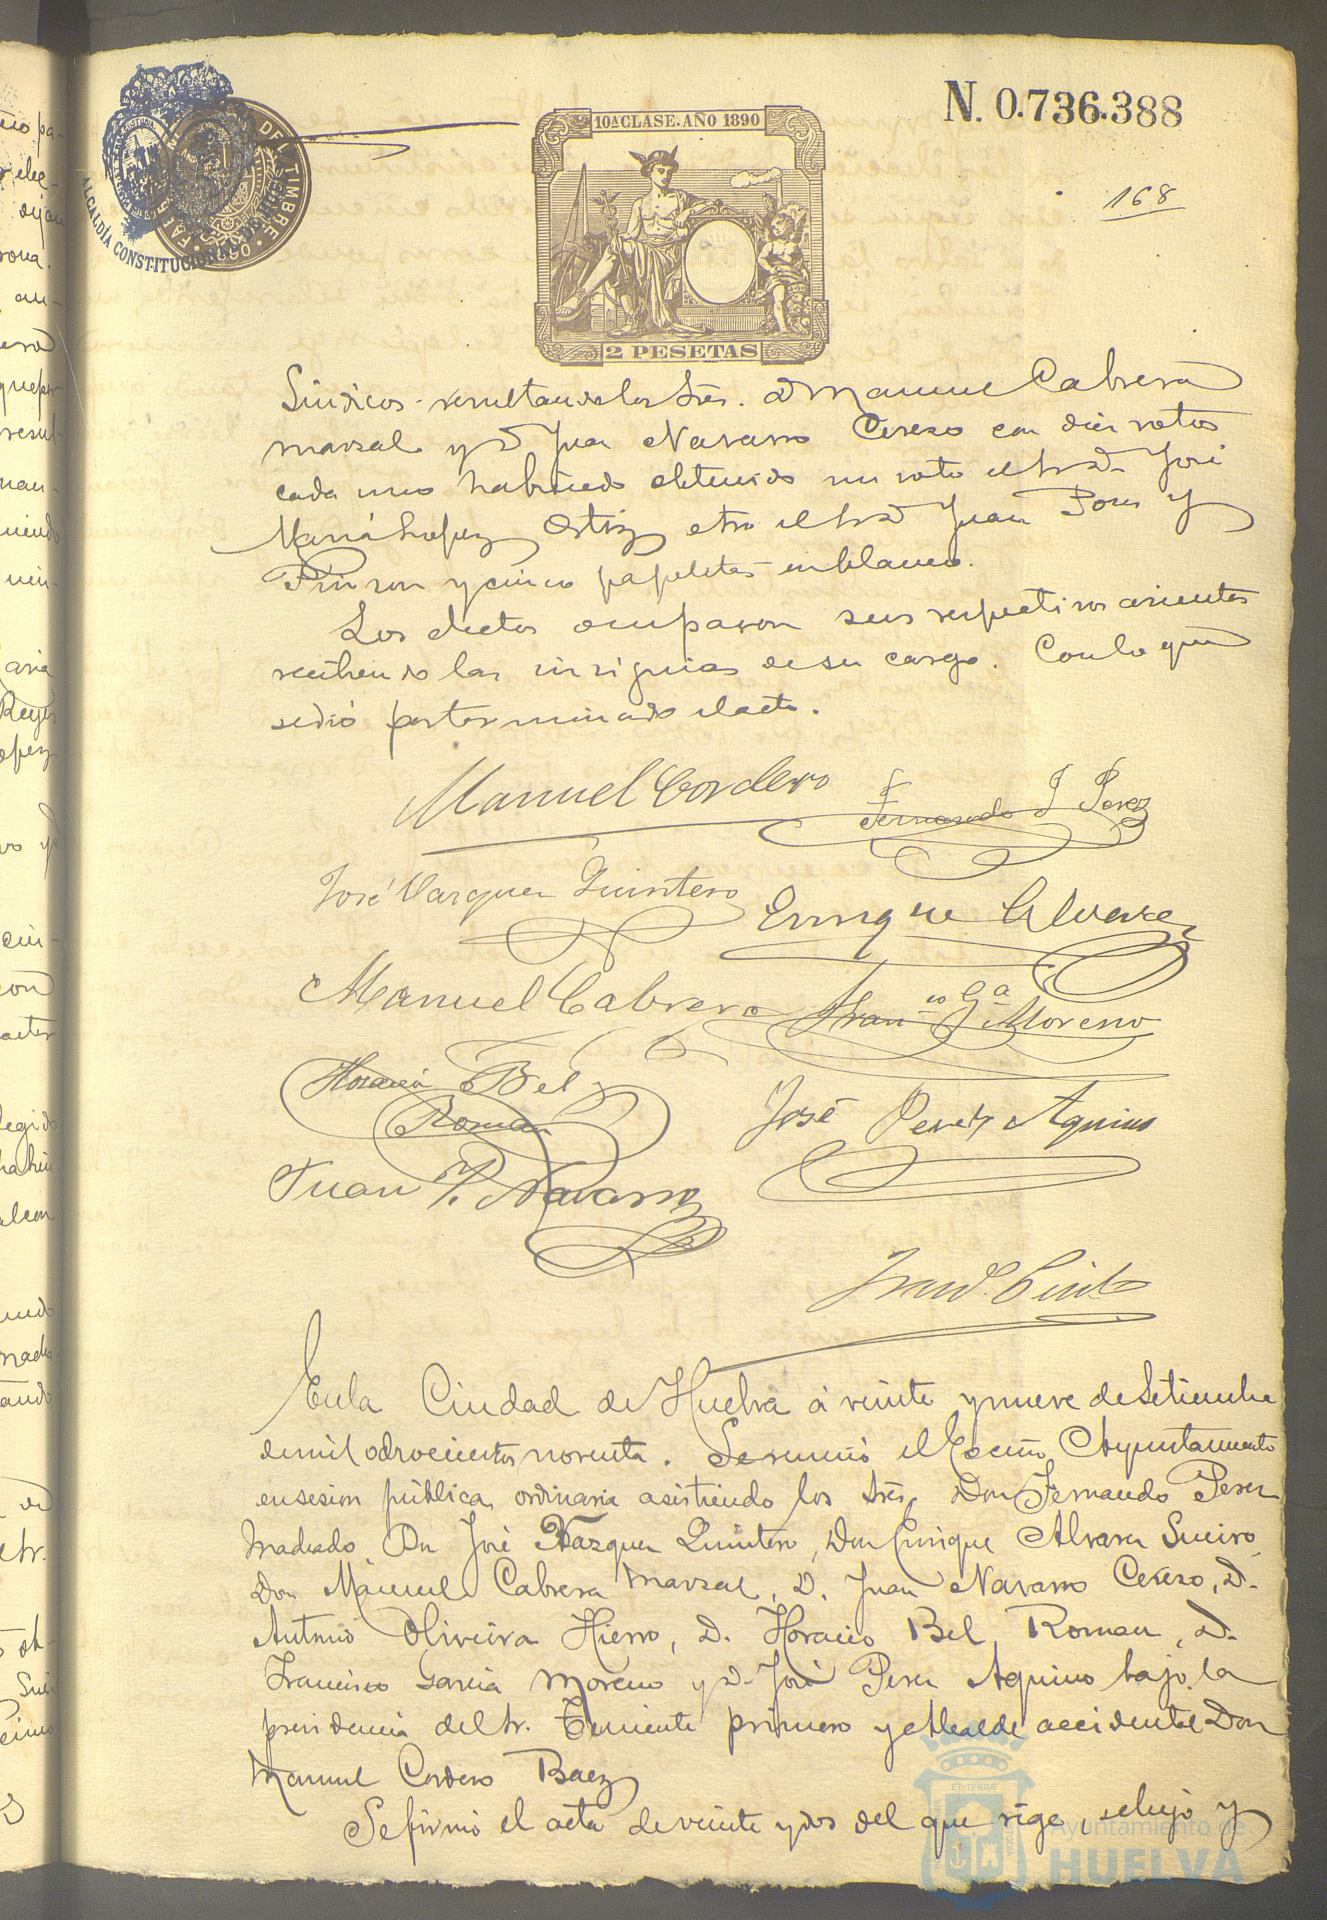 N. 0.736.388
168
10ª CLASE. AÑO 1890
2 PESETAS
DEL TIMBRE
ALCALDÍA CONSTITUCIONAL
Síndicos resultando los Sres. D Manuel Cabrera
Marzal y D Juan Navarro Cerezo con diez votos
cada uno habiendo obtenido un voto el Sr D José
María Lopez Ortiz otro el Sr D Juan Pons y
Pinzon y cinco papeletas en blanco.
Los electos ocuparon sus respectivos asientos
recibiendo las insignias de su cargo. Con lo que
se dió por terminado el acto.
Manuel Cordero
Fernando J Perez
José Vazquez Quintero
Enrique Alvarez
Manuel Cabrera
Franco Ga Moreno
Horacio Bel
Roman
José Perez Aquino
Juan P. Navarro
En la Ciudad de Huelva á veinte y nueve de Setiembre
de mil ochocientos noventa. Se reunió el Excmo Ayuntamiento
en sesion pública ordinaria asistiendo los Sres. Don Fernando Perez
Don José Vazquez Quintero, Don Enrique Alvarez Sueiro,
Don Manuel Cabrera Marzal, D. Juan Navarro Cerezo, D.
Antonio Oliveira Hierro, D. Horacio Bel Roman, D.
Francisco Garcia Moreno y D. José Perez Aquino bajo la
presidencia del Sr. Teniente primero y Alcalde accidental Don
Manuel Cordero Baez
Se firmó el acta de veinte y dos del que rige, y
Ayuntamiento de
HUELVA